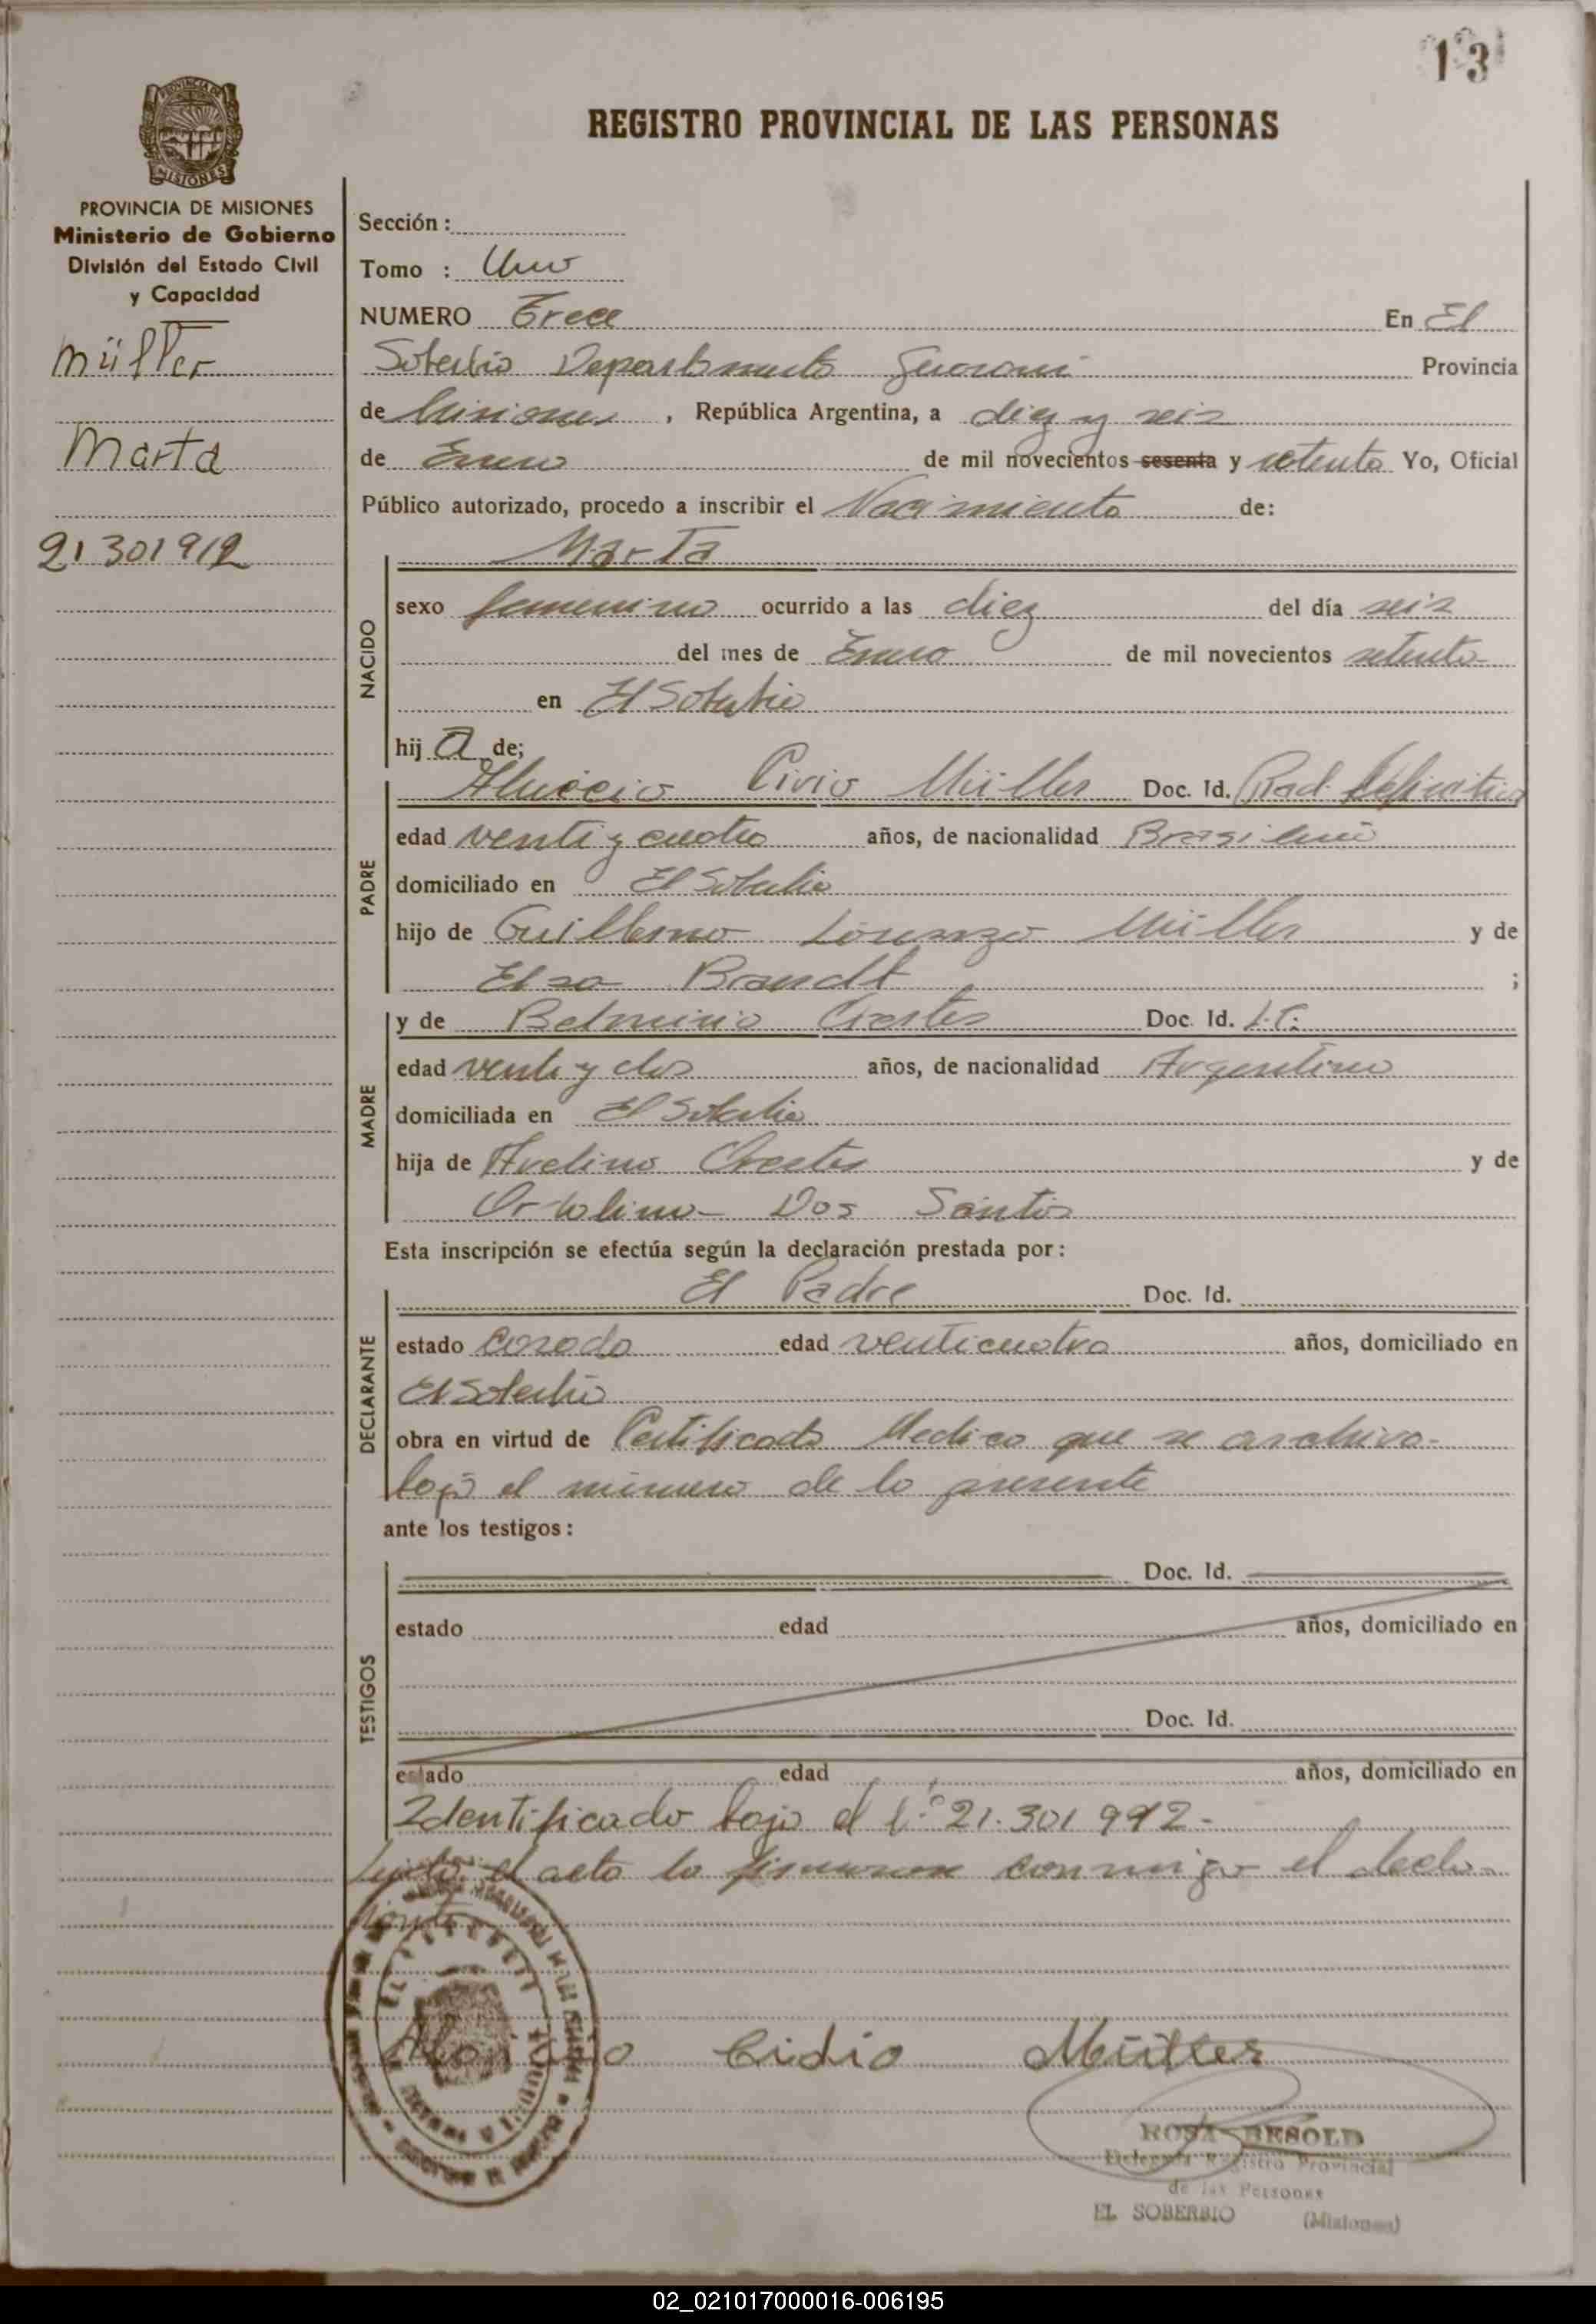 13
REGISTRO PROVINCIAL DE LAS PERSONAS
MISIONES
PROVINCIA DE MISIONES
Ministerio de Gobierno
División del Estado Civil
y Capacidad
Müller
Marta
21 301 912
Sección :
Tomo : Uno
NUMERO Trece En El
Soberbio Departamento Guarani Provincia
de Misiones , República Argentina, a diez y seis
de Enero de mil novecientos sesenta y setenta Yo, Oficial
Público autorizado, procedo a inscribir el Nacimiento de:
NACIDO
Marta
sexo femenino ocurrido a las diez del día seis
del mes de Enero de mil novecientos setenta
en El Soberbio
hij a de;
PADRE
Civio Müller Doc. Id. Rad. Definitiva
edad venti y cuatro años, de nacionalidad Brasilera
domiciliado en El Soberbio
hijo de Guillermo Lorenzo Müller y de
Elsa Brandt ;
MADRE
y de Doc. Id.
edad venti y dos años, de nacionalidad Argentina
domiciliada en El Soberbio
hija de Avelino y de
Dos Santos
Esta inscripción se efectúa según la declaración prestada por :
DECLARANTE
El Padre Doc. Id.
estado Casado edad venticuatro años, domiciliado en
El Soberbio
obra en virtud de Certificado Medico que se archiva
bajo el número de la presente
ante los testigos :
TESTIGOS
Doc. Id.
estado edad años, domiciliado en
Doc. Id.
estado edad años, domiciliado en
Identificado bajo el 21.301 992.-
el acta la firmaron conmigo el decla-
rante
Cidio Müller
ROSA BESOLD
Delegada Registro Provincial
de las Personas
EL SOBERBIO (Misiones)
02_021017000016-006195